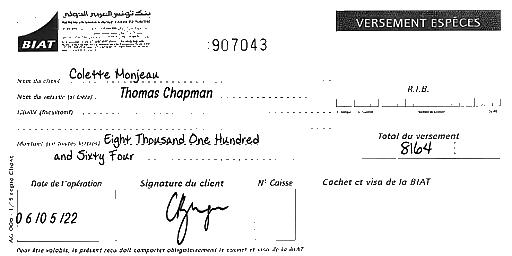 بنك تونس العربي الدولي
BIAT
907043
VERSEMENT ESPÈCES
Nom du client Colette Monjeau
Nom du remettant (si tiers) Thomas Chapman
R.I.B.
Libellé (facultatif)
Montant (en toutes lettres) Eight Thousand One Hundred
and Sixty Four
Total du versement
8164
Date de l'opération
Signature du client
N° Caisse
Cachet et visa de la BIAT
06/05/22
Pour être valable, le présent reçu doit comporter obligatoirement le cachet et visa de la BIAT